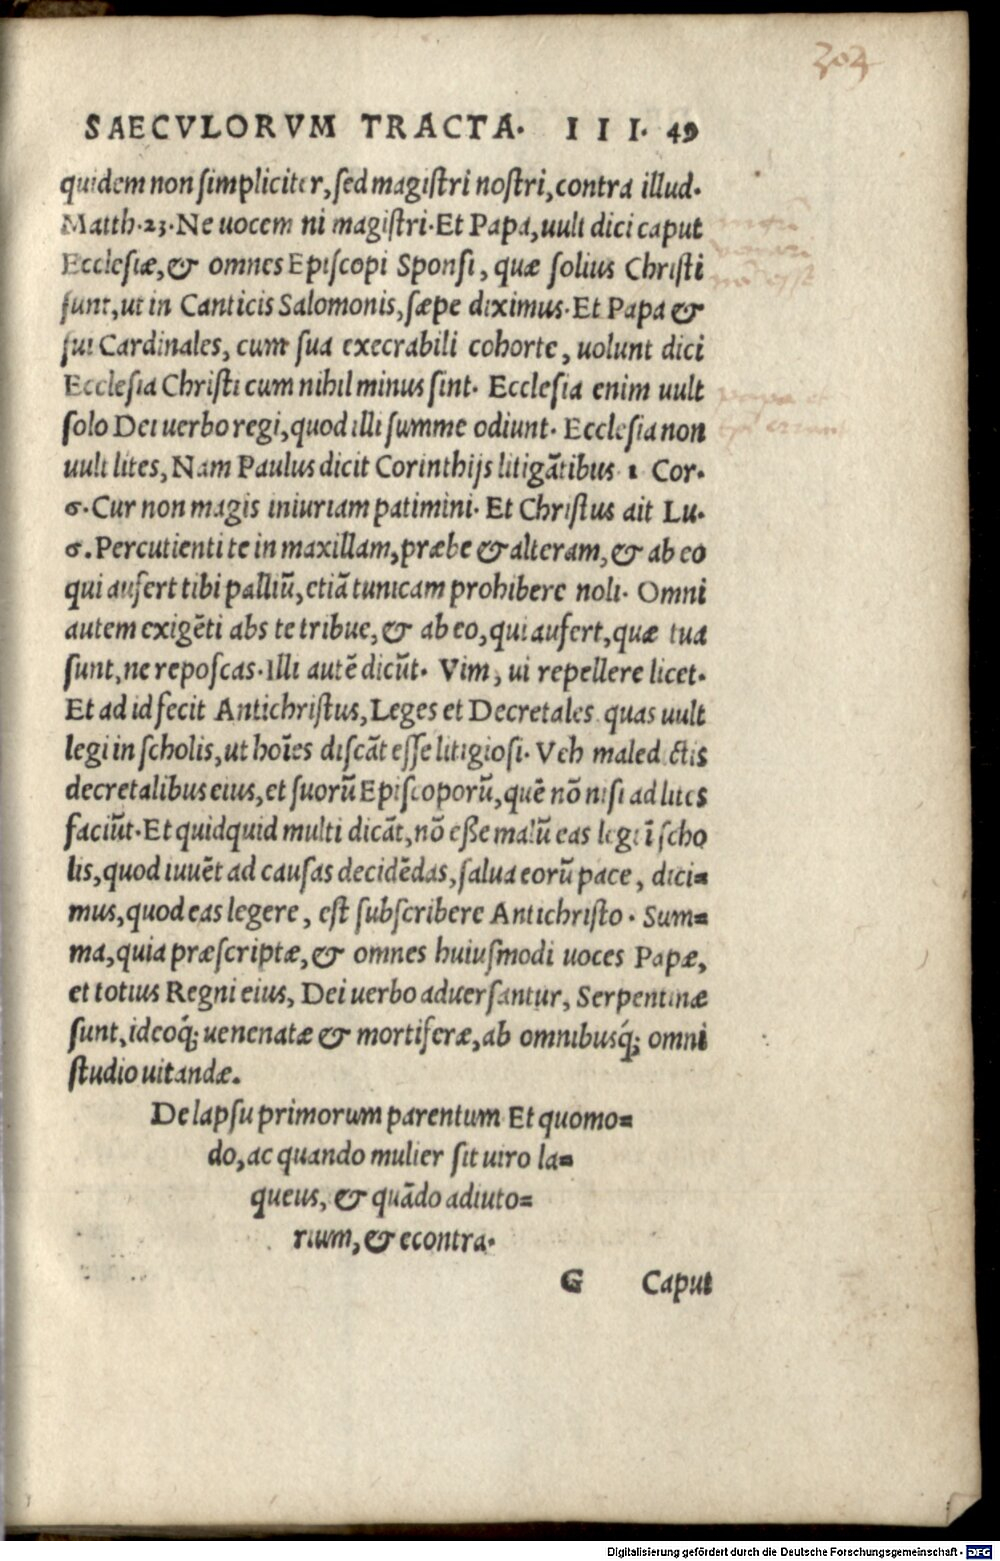 303
SAECVLORVM TRACTA. III. 49
quidem non simpliciter, sed magistri nostri, contra illud.
Matth.23. Ne uocem ni magistri. Et Papa, uult dici caput
Ecclesiæ, & omnes Episcopi Sponsi, quæ solius Christi
sunt, ut in Canticis Salomonis, sæpe diximus. Et Papa &
sui Cardinales, cum sua execrabili cohorte, uolunt dici
Ecclesia Christi cum nihil minus sint. Ecclesia enim uult
solo Dei uerbo regi, quod illi summe odiunt. Ecclesia non
uult lites, Nam Paulus dicit Corinthijs litigãtibus 1 Cor.
6. Cur non magis iniuriam patimini. Et Christus ait Lu.
6. Percutienti te in maxillam, præbe & alteram, & ab eo
qui aufert tibi palliũ, etiã tunicam prohibere noli. Omni
autem exigẽti abs te tribue, & ab eo, qui aufert, quæ tua
sunt, ne reposcas. Illi autẽ dicũt. Vim, ui repellere licet.
Et ad id fecit Antichristus, Leges et Decretales quas uult
legi in scholis, ut hoĩes discãt esse litigiosi. Veh maled ctis
decretalibus eius, et suorũ Episcoporũ, quẽ nõ nisi ad lites
faciũt. Et quidquid multi dicãt, nõ eße malũ eas legi ĩ scho
lis, quod iuuẽt ad causas decidẽdas, salua eorũ pace, dici=
mus, quod eas legere, est subscribere Antichristo. Sum=
ma, quia præscriptæ, & omnes huiusmodi uoces Papæ,
et totius Regni eius, Dei uerbo aduersantur, Serpentinæ
sunt, ideoq́; uenenatæ & mortiferæ, ab omnibusq́; omni
studio uitandæ.
De lapsu primorum parentum Et quomo=
do, ac quando mulier sit uiro la=
queus, & quãdo adiuto=
rium, & econtra.
G Caput
Digitalisierung gefördert durch die Deutsche Forschungsgemeinschaft - DFG